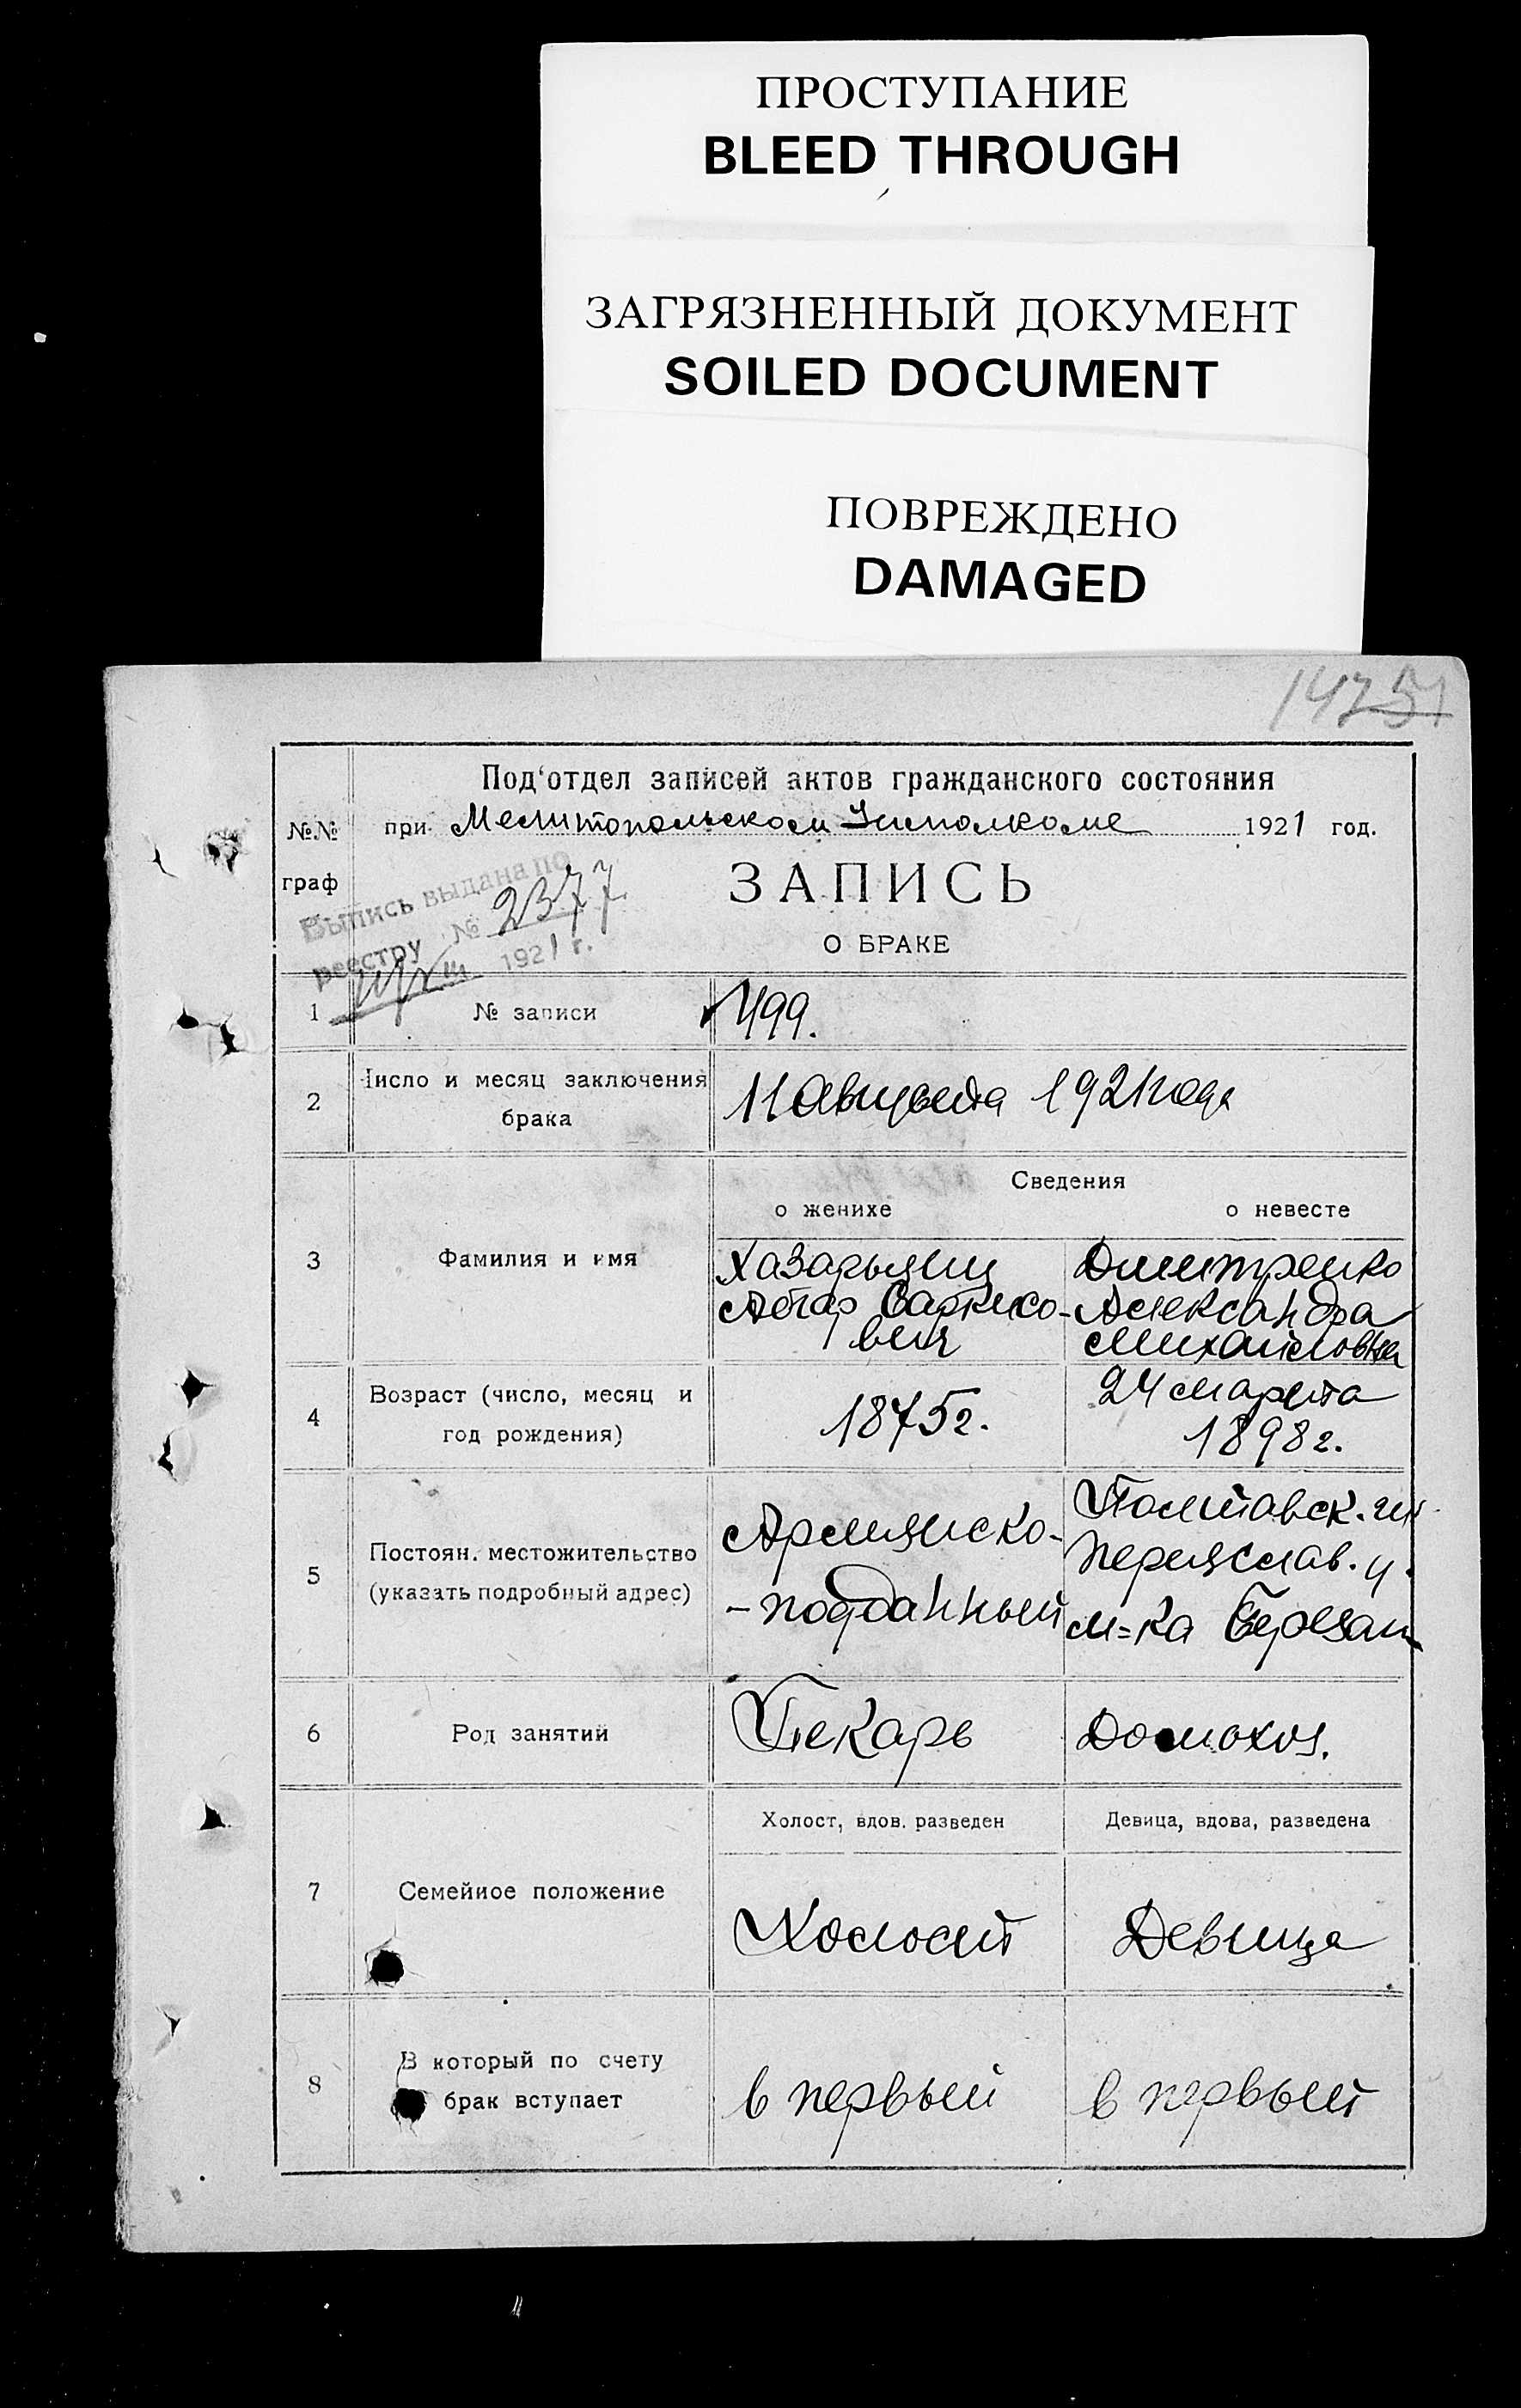 ПРОСТУПАНИЕ
BLEED THROUGH
ЗАГРЯЗНЕННЫЙ ДОКУМЕНТ
SOILED DOCUMENT
ПОВРЕЖДЕНО
DAMAGED
Под'отдел записей актов гражданского состояния
№№ при Мелитопольском Уисполкоме 1921 год.
граф
ЗАПИСЬ
О БРАКЕ
Выпись выдана по
реестру № 2377
1921 г.
1 № записи 499.
2 Число и месяц заключения брака 11 августа 1921 года
Сведения
о женихе о невесте
3 Фамилия и имя
Хазарьянц Дмитренко
Саркисо- Александра
вич Михайловна
4 Возраст (число, месяц и
год рождения)
1875 г. 24 марта
1898 г.
5 Постоян. местожительство
(указать подробный адрес)
Армянско- Полтавск. губ.
-подданный Переяслав. у.
м=ка Березань
6 Род занятий Пекарь Домохоз.
Холост, вдов. разведен Девица, вдова, разведена
7 Семейное положение Холост Девица
8 В который по счету
брак вступает
в первый в первый